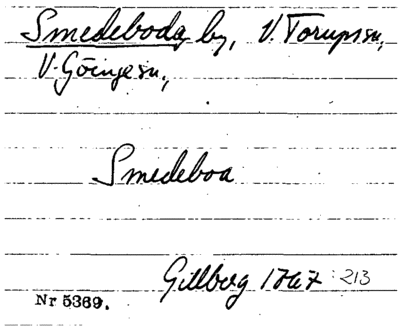 Smedeboda by, V. Torups sn,
V. Göinge sn.,
Smedeboa
Gillberg 1767 : 213
Nr 5369.